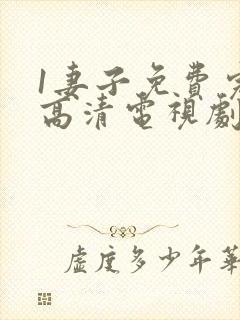 1妻子免费
高清電視劇
虛度多少年華